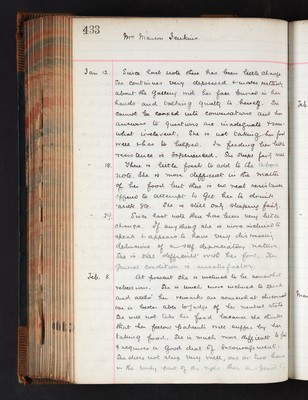 433
Mrs Marion Jenkins.
Jan 12. Since last note there has been little change
She continues very depressed &
about the gallery with her face buried in her
hands and talking quietly to herself. She
cannot be coaxed into conversation and her
answers to questions are inadequate &
what irrelevant. She is not taking her food
well & has to helped. In feeding her little
resistance is experienced. She sleeps fairly well
" 18. There is little fresh to add to the above
note. She is more difficult in the matter
of her food but there is no real resistance
offered to attempt to get her to
etc. She is still only sleeping fairly.
" 29. Since last note there has been very little
change. If anything she is more reticent to
speak & appears to have very
delusions of a self depreciatory nature
She is still difficult with her food. Her
general condition is unsatisfactory.
Feb. 8. At present she is inclined to be somewhat
She is much more inclined to speak
and altho' her remarks are somewhat
one is better able to judge of her mental state
She will not take her food because she thinks
that her fellow patients will suffer by her
taking food. She is much more difficult to feed
& requires a good deal of encouragement.
She does not sleep very well, one or two hours
in the early part of the night then